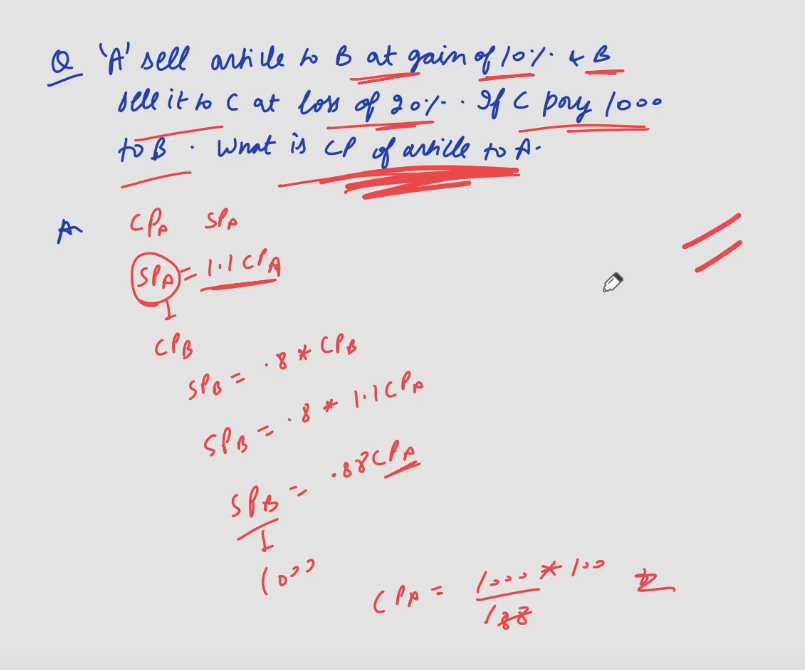 Q 'A' sell article to B at gain of 10% & B
sell it to C at loss of 20%. If C pay 1000
to B. What is CP of article to A.
A CPA SPA
SPA = 1.1 CPA
CPB
SPB = .8 * CPB
SPB = .8 * 1.1 CPA
SPB = .88 CPA
1000
CPA = 1000 * 100